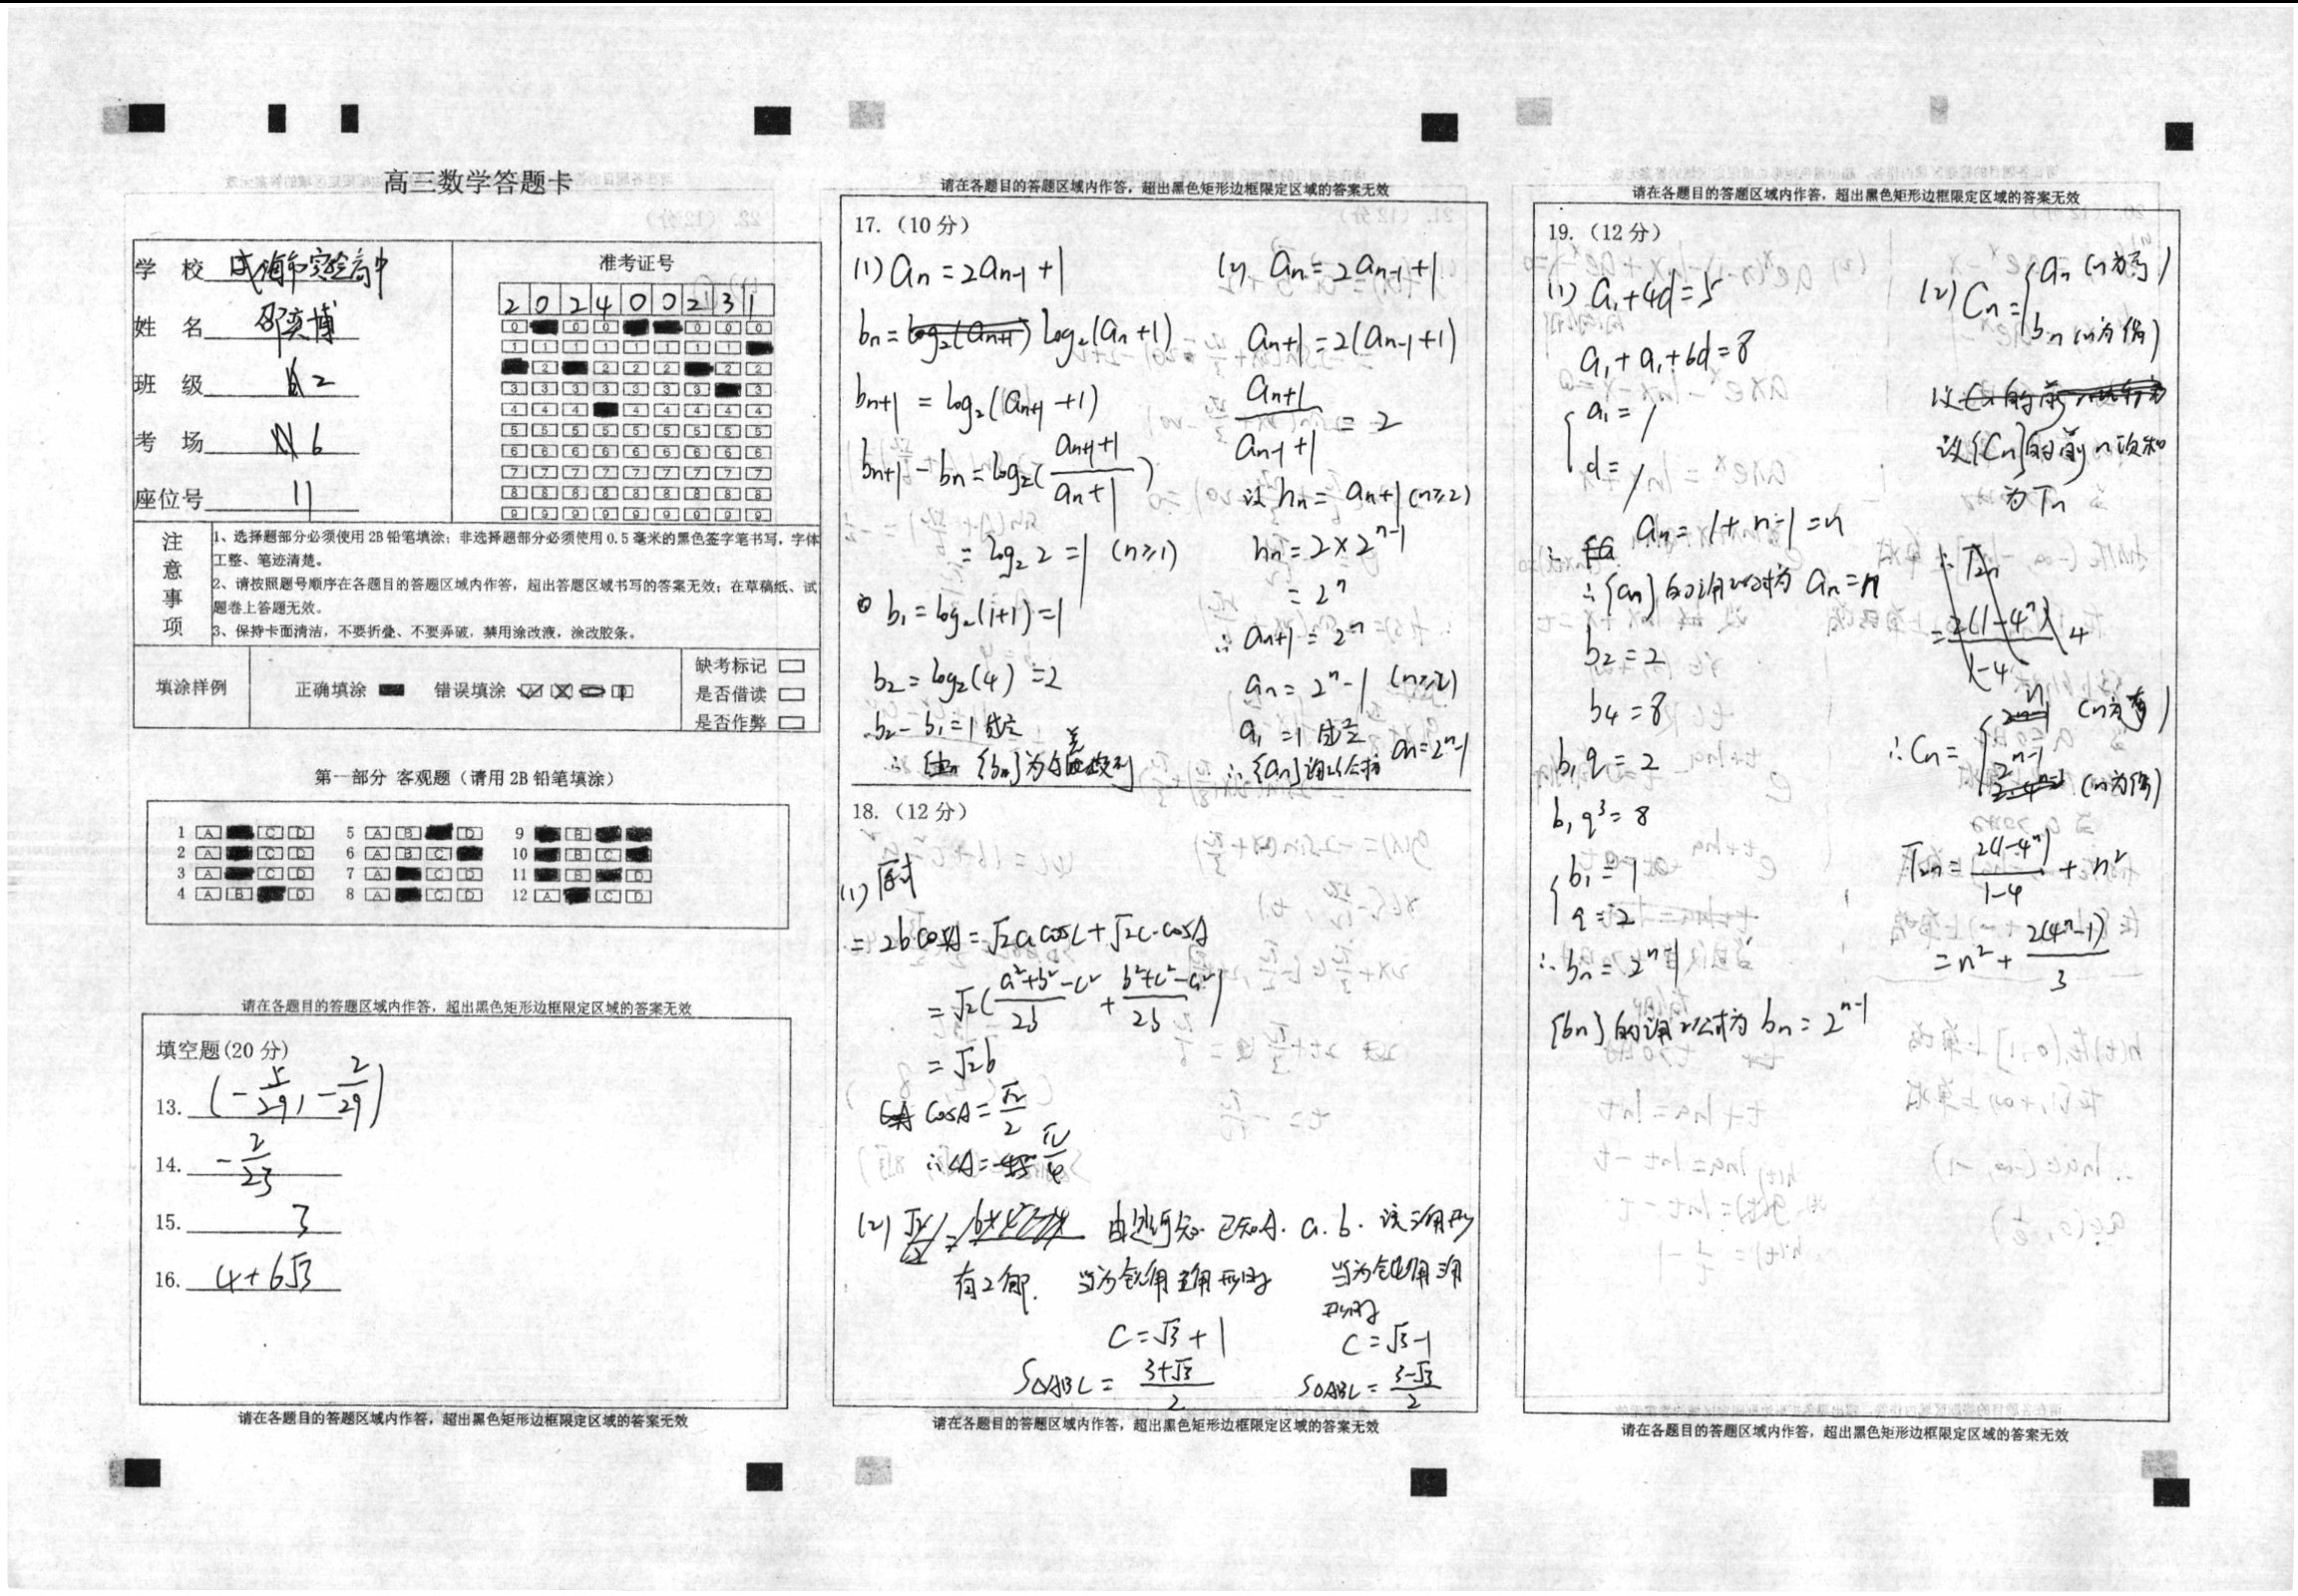 高三数学答题卡
学 校 威海市实验高中
姓 名
班 级 2
考 场 6
座位号 11
准考证号
2 0 2 4 0 0 2 3 1
注意事项
1、选择题部分必须使用2B铅笔填涂；非选择题部分必须使用0.5毫米的黑色签字笔书写，字体
工整、笔迹清楚。
2、请按照题号顺序在各题目的答题区域内作答，超出答题区域书写的答案无效；在草稿纸、试
题卷上答题无效。
3、保持卡面清洁，不要折叠、不要弄破，禁用涂改液，涂改胶条。
填涂样例 正确填涂 错误填涂
缺考标记
是否借读
是否作弊
第一部分 客观题（请用2B铅笔填涂）
1 A C D 5 A B D 9 B
2 A C D 6 A B C 10 B C
3 A C D 7 A C D 11 B D
4 A B D 8 A C D 12 A C D
请在各题目的答题区域内作答，超出黑色矩形边框限定区域的答案无效
填空题(20分)
13. (-5/29, -2/29)
14. -2/23
15. 3
16. 4+6√3
请在各题目的答题区域内作答，超出黑色矩形边框限定区域的答案无效
请在各题目的答题区域内作答，超出黑色矩形边框限定区域的答案无效
17.（10分）
(1) an = 2an-1 + 1
bn = log2(an+1)
bn+1 = log2(an+1 +1)
bn+1 - bn = log2((an+1+1)/(an+1))
= log2 2 = 1 (n≥1)
b1 = log2(1+1) = 1
b2 = log2(4) = 2
b2 - b1 = 1 成立
∴ {bn}为等差数列
(2) an = 2an-1 + 1
an+1 = 2(an-1+1)
(an+1)/(an-1+1) = 2
设 hn = an+1 (n≥2)
hn = 2×2^(n-1)
= 2^n
∴ an+1 = 2^n
an = 2^n-1 (n≥2)
a1 = 1 成立
∴ {an}通公式为 an=2^n-1
18.（12分）
(1) 原式
= 2bcosA = √2acosC + √2c·cosA
= √2((a²+b²-c²)/2b + (b²+c²-a²)/2b)
= √2b
cosA = √2/2
∴ ∠A = π/4
(2) 由题可知 已知A. a. b. 该三角形
有2解. 当为锐角三角形时 当为钝角三角
形时
C = √3+1 C = √3-1
S△ABC = (3+√3)/2 S△ABC = (3-√3)/2
请在各题目的答题区域内作答，超出黑色矩形边框限定区域的答案无效
请在各题目的答题区域内作答，超出黑色矩形边框限定区域的答案无效
19.（12分）
(1) a1+4d=5
a1+a1+6d=8
{a1 = 1
d = 1
∴ an = 1+n-1 = n
∴ {an}的通项公式为 an=n
b2 = 2
b4 = 8
b1q = 2
b1q³ = 8
{b1 = 1
q = 2
∴ bn = 2^(n-1)
{bn}的通项公式为 bn = 2^(n-1)
(2) Cn = {an (n为奇)
bn (n为偶)
设{Cn}的前n项和
为Tn
∴ Cn = {n (n为奇)
2^(n-1) (n为偶)
T2n = 2(1-4^n)/(1-4) + n²
= n² + 2(4^n-1)/3
请在各题目的答题区域内作答，超出黑色矩形边框限定区域的答案无效